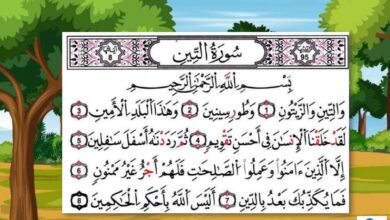 سُورَةُ التِّينِ
بِسْمِ اللَّهِ الرَّحْمَٰنِ الرَّحِيمِ
وَالتِّينِ وَالزَّيْتُونِ 1 وَطُورِ سِينِينَ 2 وَهَٰذَا الْبَلَدِ الْأَمِينِ 3
لَقَدْ خَلَقْنَا الْإِنسَٰنَ فِي أَحْسَنِ تَقْوِيمٍ 4 ثُمَّ رَدَدْنَٰهُ أَسْفَلَ سَٰفِلِينَ 5
إِلَّا الَّذِينَ ءَامَنُوا وَعَمِلُوا الصَّٰلِحَٰتِ فَلَهُمْ أَجْرٌ غَيْرُ مَمْنُونٍ 6
فَمَا يُكَذِّبُكَ بَعْدُ بِالدِّينِ 7 أَلَيْسَ اللَّهُ بِأَحْكَمِ الْحَٰكِمِينَ 8